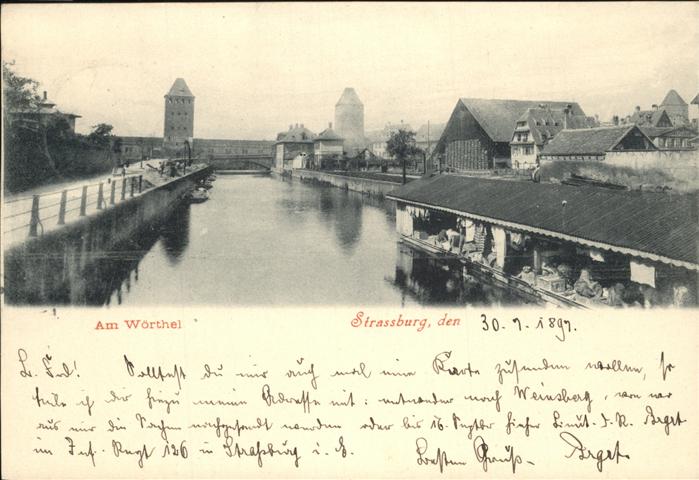 Am Wörthel
Strassburg, den 30. 7. 1897.
L. Frd! Solltest du mir auch mal eine Karte zusenden wollen, so
teile ich dir hiezu meine Adresse mit: entweder nach Weinsberg, von wo
aus mir die Sachen nachgesandt werden oder bis 16. Septbr hieher Lieut. d. R.
im Inf. Regt 126 in Straßburg i. E. Besten Gruß